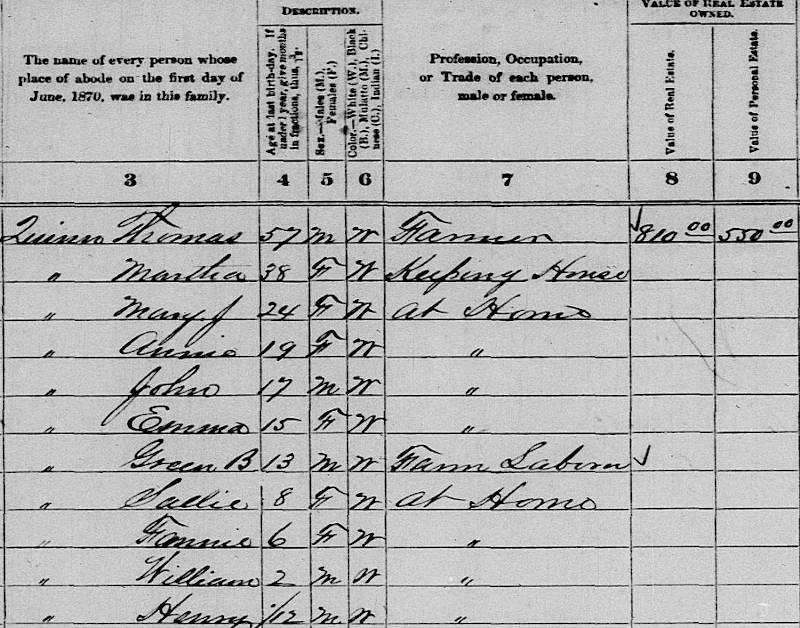 DESCRIPTION.
VALUE OF REAL ESTATE OWNED.
The name of every person whose place of abode on the first day of June, 1870, was in this family.
Age at last birth-day. If under 1 year, give months in fractions, thus, 3/12.
Sex.—Males (M.), Females (F.)
Color.—White (W.), Black (B.), Mulatto (M.), Chinese (C.), Indian (I.)
Profession, Occupation, or Trade of each person, male or female.
Value of Real Estate.
Value of Personal Estate.
3 4 5 6 7 8 9
Quinn Thomas 57 M W Farmer 810 00 550 00
" Martha 38 F W Keeping House
" Mary J 24 F W at Home
" Annie 19 F W "
" John 17 M W "
" Emma 15 F W "
" Green B 13 M W Farm Laborer
" Sallie 8 F W at Home
" Fannie 6 F W "
" William 2 M W "
" Henry 1/12 M W "